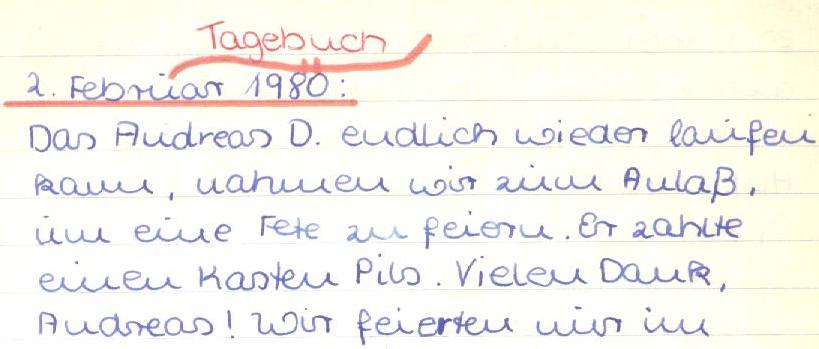 Tagebuch
2. Februar 1980:
Das Andreas D. endlich wieder laufen
kann, nahmen wir zum Anlaß,
um eine Fete zu feiern. Er zahlte
einen Kasten Pils. Vielen Dank,
Andreas! Wir feierten nur im